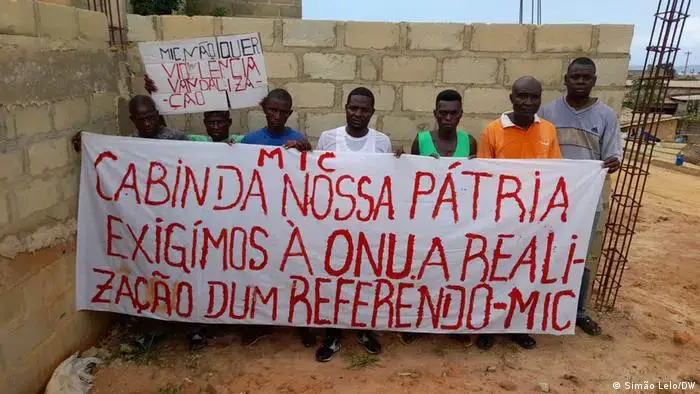 MIC NÃO QUER
VIOLÊNCIA
VANDALIZA-
ÇÃO
MIC
CABINDA NOSSA PÁTRIA
EXIGÍMOS À ONU.A REALI-
ZAÇÃO DUM REFERENDO-MIC
© Simão Lelo/DW